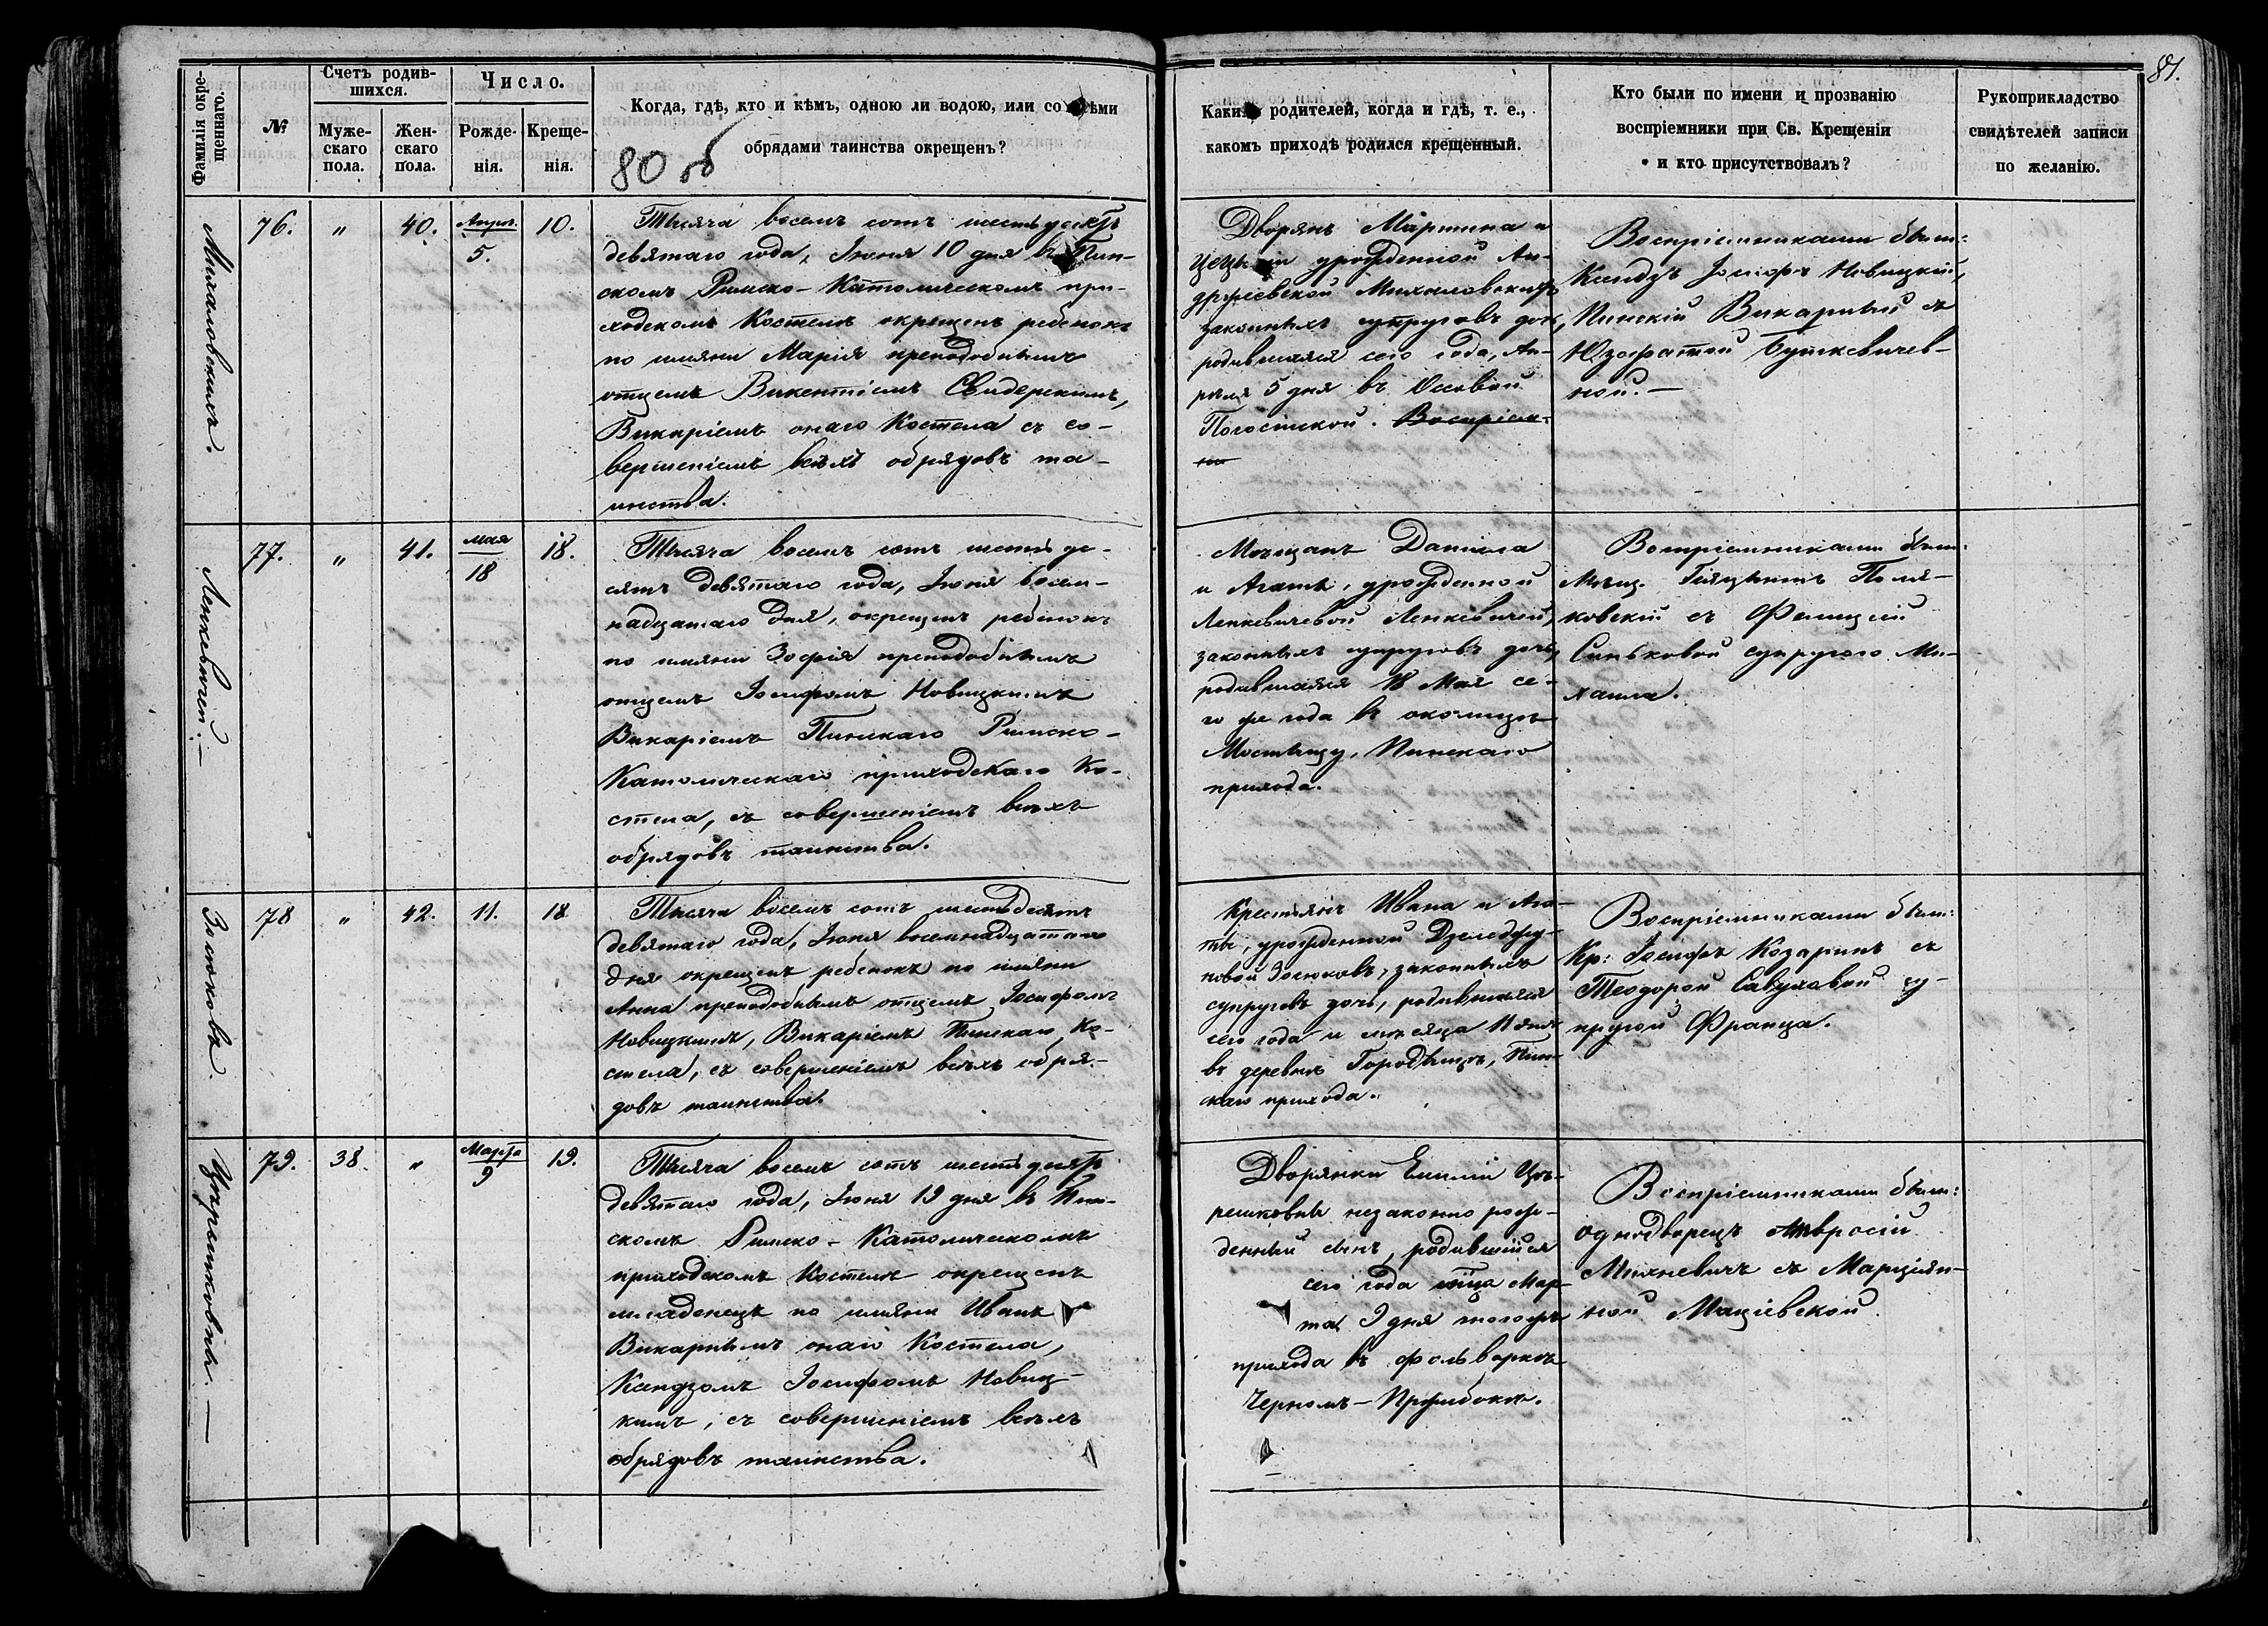 81.
Фамилія окре-
щеннаго.
№
Счетъ родив-
шихся.
Муже-
скаго
пола.
Жен-
скаго
пола.
Число.
Рожде-
нія.
Креще-
нія.
Когда, гдѣ, кто и кѣмъ, одною ли водою, или со всѣми
обрядами таинства окрещенъ?
80 об
Какихъ родителей, когда и гдѣ, т. е.,
какомъ приходѣ родился крещенный.
Кто были по имени и прозванію
воспріемники при Св. Крещеніи
и кто присутствовалъ?
Рукоприкладство
свидѣтелей записи
по желанію.
Михаловскихъ.
76.
"
40.
Апрѣл.
5.
10.
Тысяча восемъ сотъ шестьдесятъ
девятаго года, Іюня 10 дня въ Пин-
скомъ Римско-Католическомъ при-
ходскомъ Костелѣ окрещенъ ребенокъ
по имяни Марія преподобнымъ
отцемъ Викентіемъ Свидерскимъ,
Викаріемъ онаго Костела съ со-
вершеніемъ всѣхъ обрядовъ та-
инства.
Дворянъ Мартина и
урожденной Ан-
држіевской Михаловскихъ
законныхъ супруговъ дочь,
родившаяся сего года, Ап-
рѣля 5 дня въ Оссовой
Погостской. Воспріем-
ни
Воспріемниками были:
Ксендзъ Іосифъ Новицкій,
Пинскій Викарный съ
Юзофатой Буткевичев-
ной.—
Ленкевичей.—
77.
"
41.
мая
18
18.
Тысяча восемъ сотъ шестьде-
сятъ девятаго года, Іюня восем-
надцатаго дня, окрещенъ ребенокъ
по имяни Зофія преподобнымъ
отцемъ Іосифомъ Новицкимъ
Викаріемъ Пинскаго Римско-
Католическаго приходскаго Ко-
стела, съ совершеніемъ всѣхъ
обрядовъ таинства.
Мѣщанъ Даніила
и Агаты, урожденной
Ленкевичевой Ленкевичей,
законныхъ супруговъ дочь,
родившаяся 18 Мая се-
го же года въ околицѣ
Мостыщу, Пинскаго
прихода.
Воспріемниками были:
Мѣщ. Гіяцынтъ Поля-
ковскій съ Фелиціей
Синьковой супругою Ми-
хаила.
Золюковъ.
78
"
42.
11.
18
Тысяча восемъ сотъ шестьдесятъ
девятаго года, Іюня восемнадцатаго
дня окрещенъ ребенокъ по имяни
Анна преподобнымъ отцемъ Іосифомъ
Новицкимъ, Викаріемъ Пинскаго Ко-
стела, съ совершеніемъ всѣхъ обря-
довъ таинства.
Крестьянъ Ивана и Ага-
ты, урожденной
законныхъ
супруговъ дочь, родившаяся
сего года и мѣсяца 11 дня
въ деревнѣ Городыщѣ, Пин-
скаго прихода.
Воспріемниками были:
Кр: Іосифъ Козаринъ съ
Теодорой Савуховой су-
пругой Франца.
79.
38.
"
Марта
9
19.
Тысяча восемъ сотъ шестьдесятъ
девятаго года, Іюня 19 дня въ Пин-
скомъ Римско-Католическомъ
приходскомъ Костелѣ окрещенъ
младенецъ по имяни Иванъ
Викарнымъ онаго Костела,
Ксендзомъ Іосифомъ Новиц-
кимъ, съ совершеніемъ всѣхъ
обрядовъ таинства.
Дворянки Емиліи
незаконно рож-
денный сынъ, родившійся
сего года мѣца Мар-
та 9 дня тогожъ
прихода въ фольваркѣ
Черномъ-
Воспріемниками были:
однодворецъ Амвросій
Михневичъ съ Марціян-
ной Маціевской.